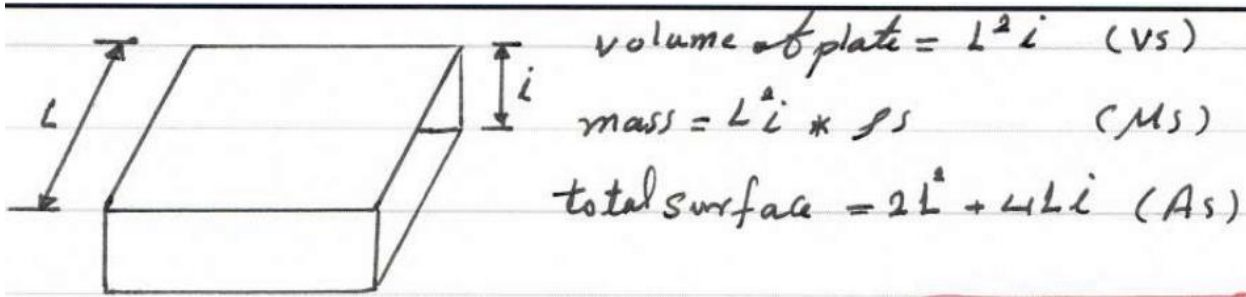 volume of plate = L² i (Vs)
L
i
mass = L² i * ρs (Ms)
total surface = 2L² + 4Li (As)